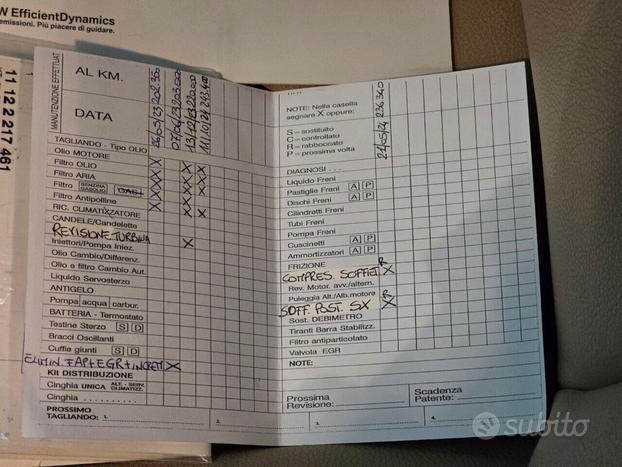 W EfficientDynamics
emissioni. Più piacere di guidare.
11 12 2 217 461
MANUTENZIONE EFFETTUAT.
AL KM.
DATA
26/05/23 202.350
07/06/23 203.000
13/12/23 220.000
11/10/24 243.400
TAGLIANDO - Tipo OLIO
Olio MOTORE
Filtro OLIO
Filtro ARIA
Filtro BENZINA GASOLIO GAS
Filtro Antipolline
RIC. CLIMATIZZATORE
CANDELE/Candelette
REVISIONE TURBINA
Iniettori/Pompa Iniez.
Olio Cambio/Differenz.
Olio e filtro Cambio Aut.
Liquido Servosterzo
ANTIGELO
Pompa acqua carbur.
BATTERIA - Termostato
Testine Sterzo S D
Bracci Oscillanti
Cuffie giunti S D
ELIMIN. FAP+EGR+ X
KIT DISTRIBUZIONE
Cinghia UNICA ALT. - SERV. CLIMATIZZ.
Cinghia ..........
PROSSIMO TAGLIANDO: 1. 2.
NOTE: Nella casella
segnare X oppure:
S = sostituito
C = controllato
R = rabboccato
P = prossima volta
21/05/24 236.340
DIAGNOSI . . .
Liquido Freni
Pastiglie Freni A P
Dischi Freni A P
Cilindretti Freni
Tubi Freni
Pompa Freni
Cuscinetti A P
Ammortizzatori A P
FRIZIONE
COMPRES. SOFFIET. X R
Rev. Motor. avv./altern.
Puleggia Alt./Alb.motore
SOFF. POST. SX X R
Sost. DEBIMETRO
Tiranti Barra Stabilizz.
Filtro antiparticolato
Valvola EGR
NOTE:
Prossima
Revisione:
Scadenza
Patente:
3. 4.
subito